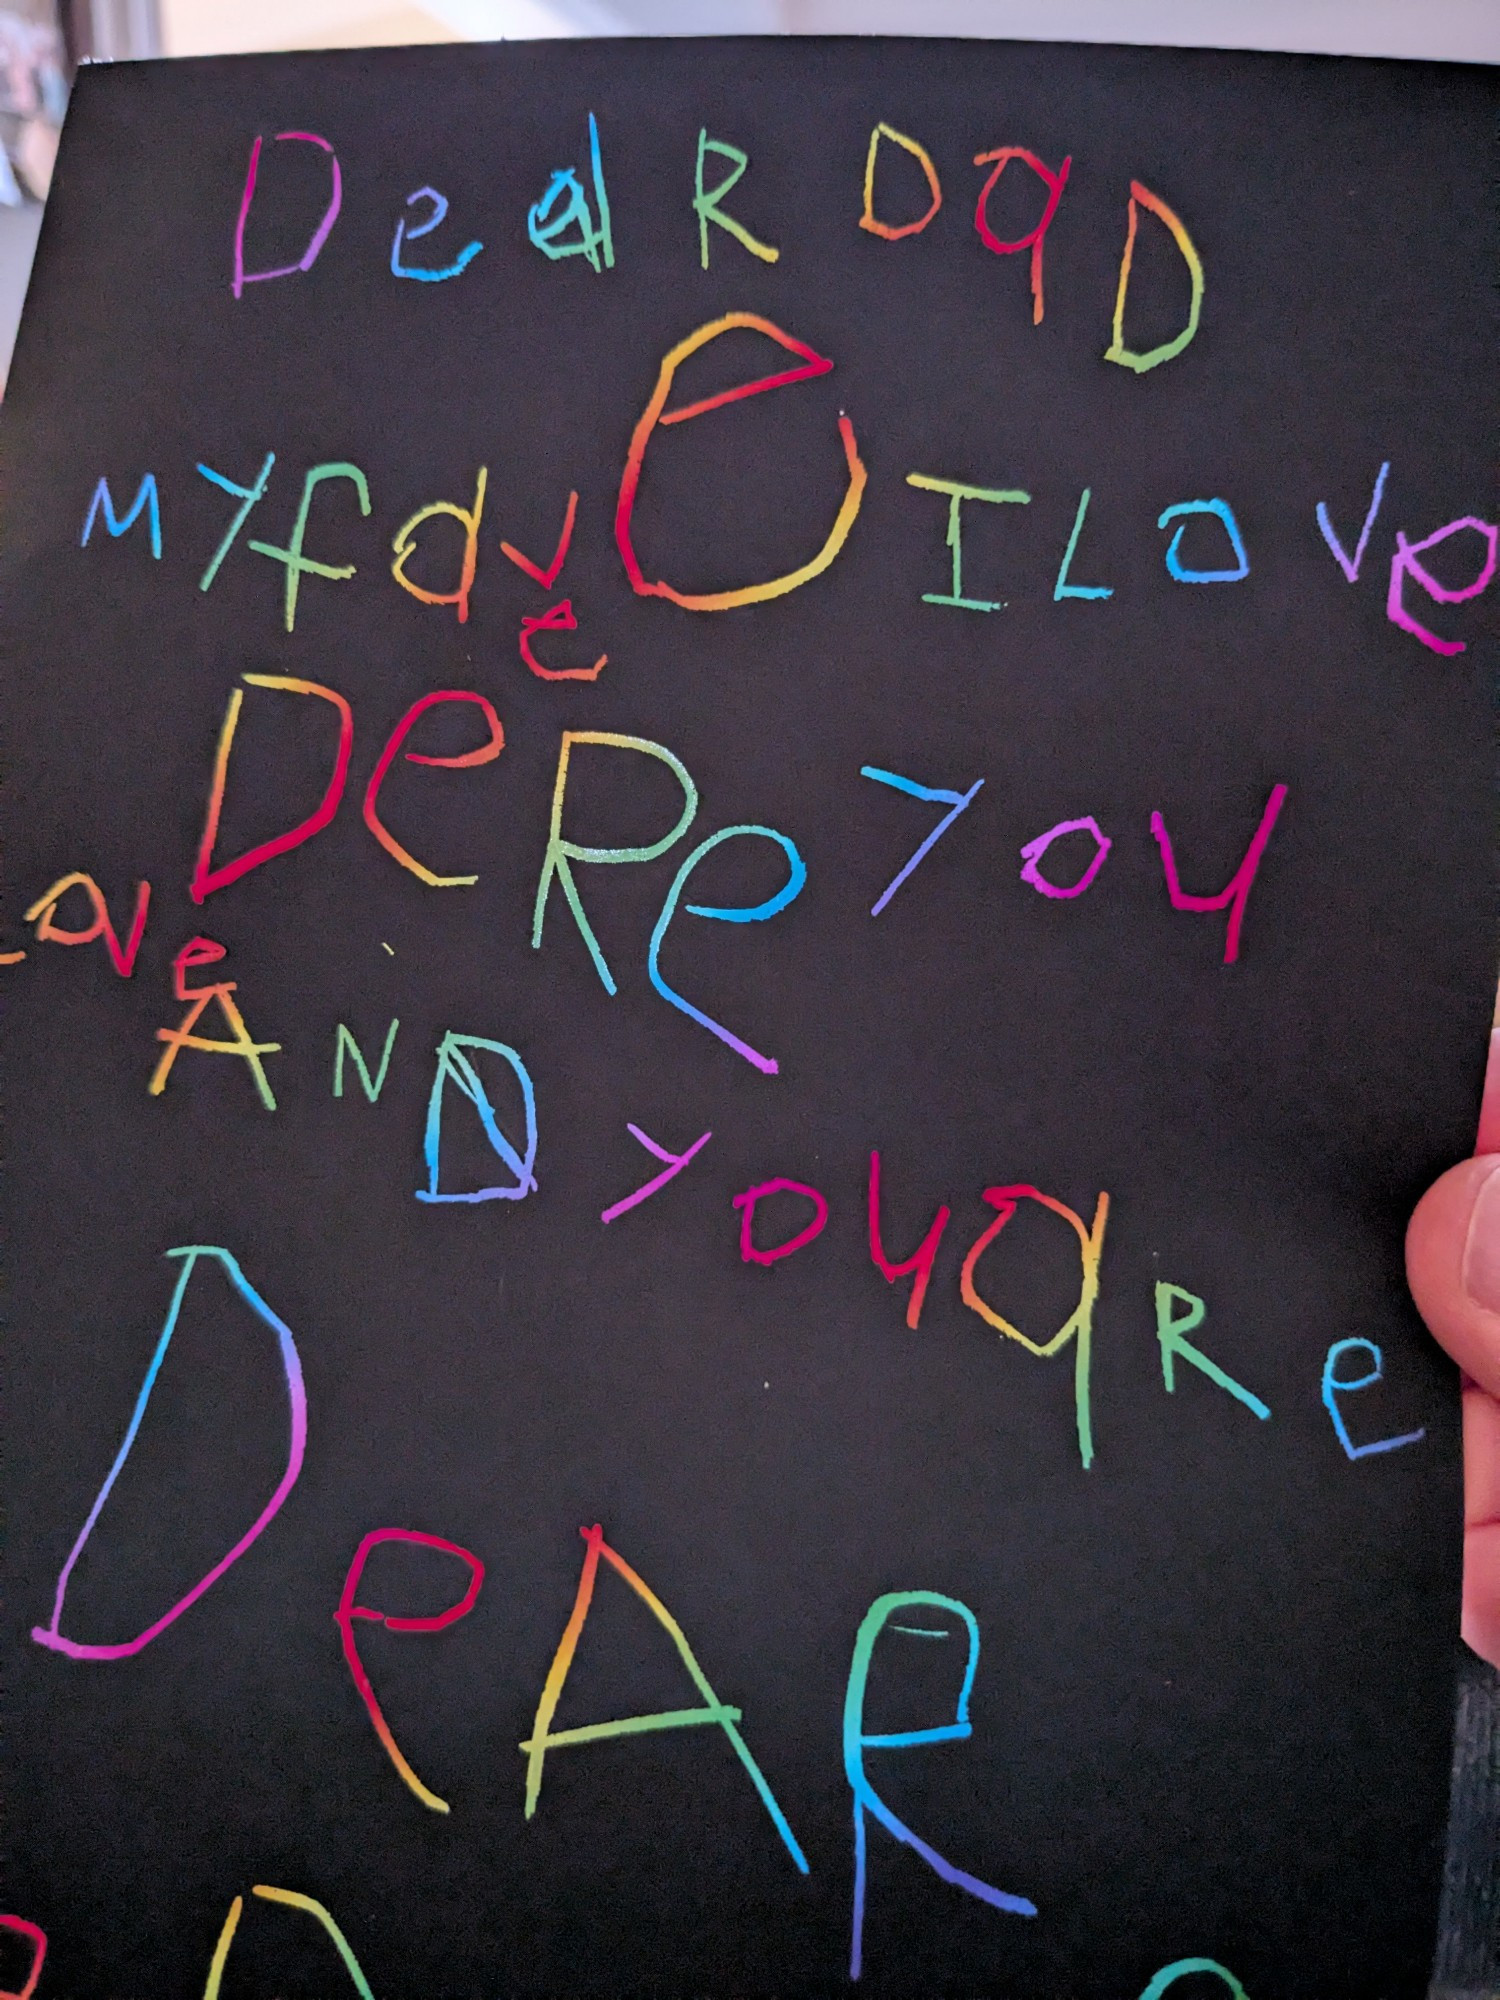 DeaR DaD
MY fave e I Love
DeRe You
Love
AND YOU aRe
DeAR